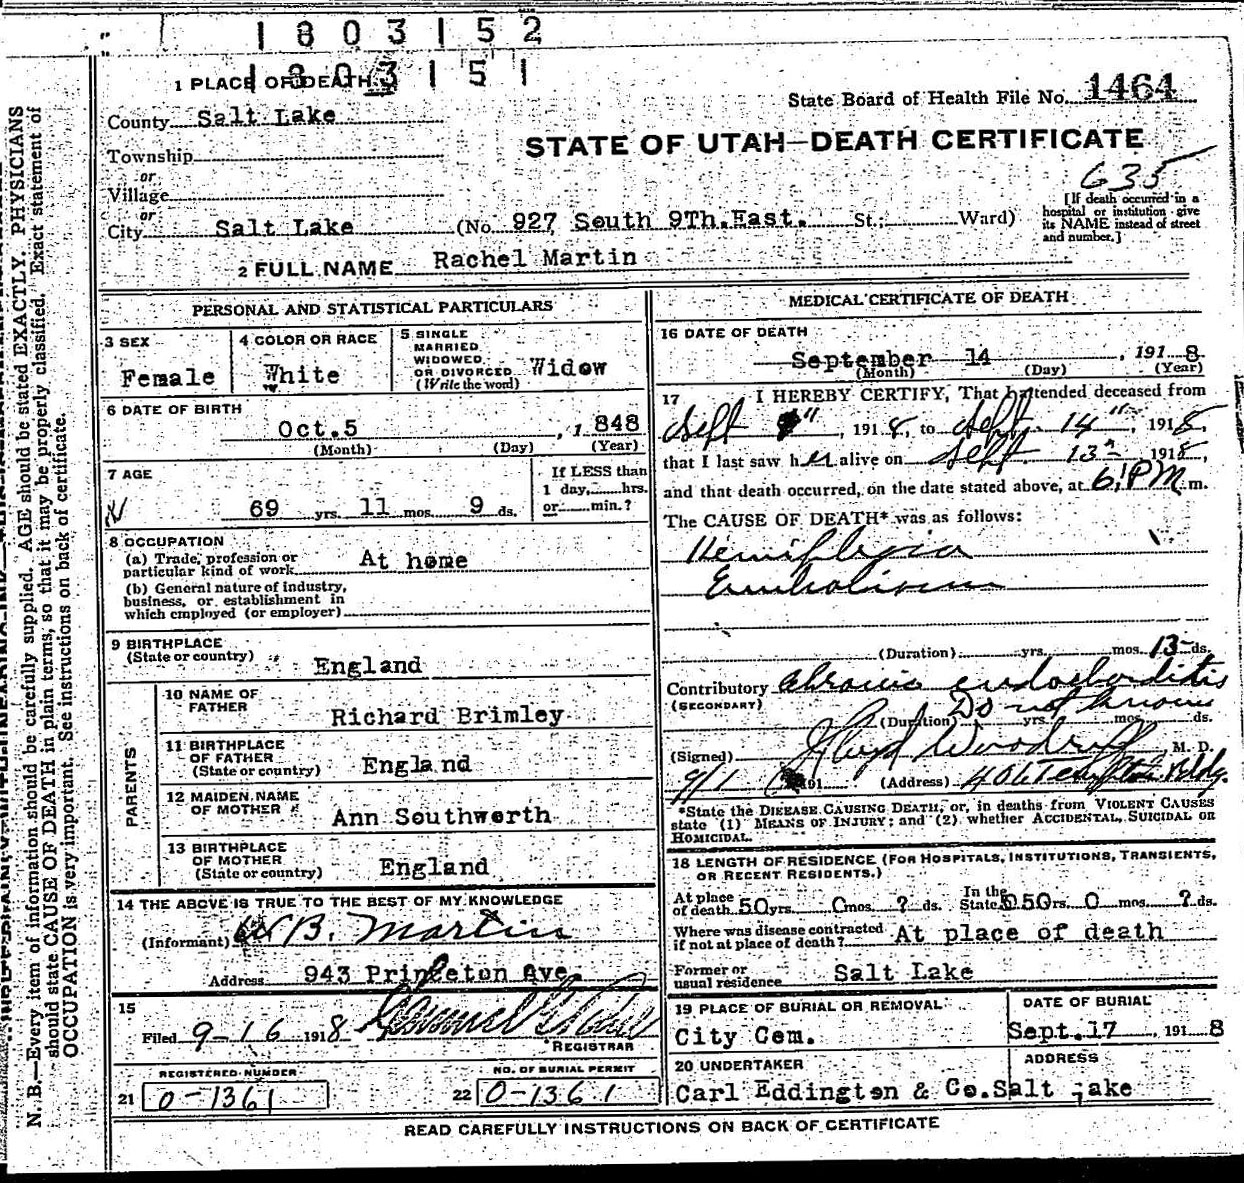 1803152
1803151
1 PLACE OF DEATH
State Board of Health File No. 1464
County Salt Lake
STATE OF UTAH—DEATH CERTIFICATE
Township
or
635
Village
or
City Salt Lake (No. 927 South 9Th.East. St.; Ward)
[If death occurred in a
hospital or institution give
its NAME instead of street
and number.]
2 FULL NAME Rachel Martin
PERSONAL AND STATISTICAL PARTICULARS
3 SEX
Female
4 COLOR OR RACE
White
5 SINGLE
MARRIED
WIDOWED
OR DIVORCED
(Write the word)
Widow
6 DATE OF BIRTH
Oct.5, 1848
(Month) (Day) (Year)
7 AGE
69 yrs. 11 mos. 9 ds.
If LESS than
1 day, hrs.
or min.?
8 OCCUPATION
(a) Trade, profession or
particular kind of work At home
(b) General nature of industry,
business, or establishment in
which employed (or employer)
9 BIRTHPLACE
(State or country) England
PARENTS
10 NAME OF
FATHER
Richard Brimley
11 BIRTHPLACE
OF FATHER
(State or country) England
12 MAIDEN NAME
OF MOTHER
Ann Southworth
13 BIRTHPLACE
OF MOTHER
(State or country) England
14 THE ABOVE IS TRUE TO THE BEST OF MY KNOWLEDGE
(Informant) B. Martin
Address 943 Princeton Ave
15
Filed 9-16 1918
REGISTRAR
REGISTERED NUMBER
21 0-1361
NO. OF BURIAL PERMIT
22 0-1361
MEDICAL CERTIFICATE OF DEATH
16 DATE OF DEATH
September 14, 1918
(Month) (Day) (Year)
17 I HEREBY CERTIFY, That I attended deceased from
Sept, 1918, to Sept. 14", 1918,
that I last saw her alive on Sept. 13, 1918,
and that death occurred, on the date stated above, at 6 PM m.
The CAUSE OF DEATH* was as follows:
Hemiplegia
Embolism
(Duration) yrs. mos. 13 ds.
Contributory Chronic endocarditis
(SECONDARY)
Do not know
(Duration) yrs. mos. ds.
(Signed) Woodruff, M. D.
191 (Address) 406 Templeton Bldg.
*State the DISEASE CAUSING DEATH, or, in deaths from VIOLENT CAUSES
state (1) MEANS OF INJURY; and (2) whether ACCIDENTAL, SUICIDAL OR
HOMICIDAL.
18 LENGTH OF RESIDENCE (FOR HOSPITALS, INSTITUTIONS, TRANSIENTS,
OR RECENT RESIDENTS.)
At place
of death 50 yrs. 0 mos. ? ds.
In the
State 50 yrs. 0 mos. ? ds.
Where was disease contracted
if not at place of death? At place of death
Former or
usual residence Salt Lake
19 PLACE OF BURIAL OR REMOVAL
City Cem.
DATE OF BURIAL
Sept.17, 1918
20 UNDERTAKER
Carl Eddington & Co.
ADDRESS
Salt Lake
READ CAREFULLY INSTRUCTIONS ON BACK OF CERTIFICATE
N. B.—Every item of information should be carefully supplied. AGE should be stated EXACTLY. PHYSICIANS
should state CAUSE OF DEATH in plain terms, so that it may be properly classified. Exact statement of
OCCUPATION is very important. See instructions on back of certificate.